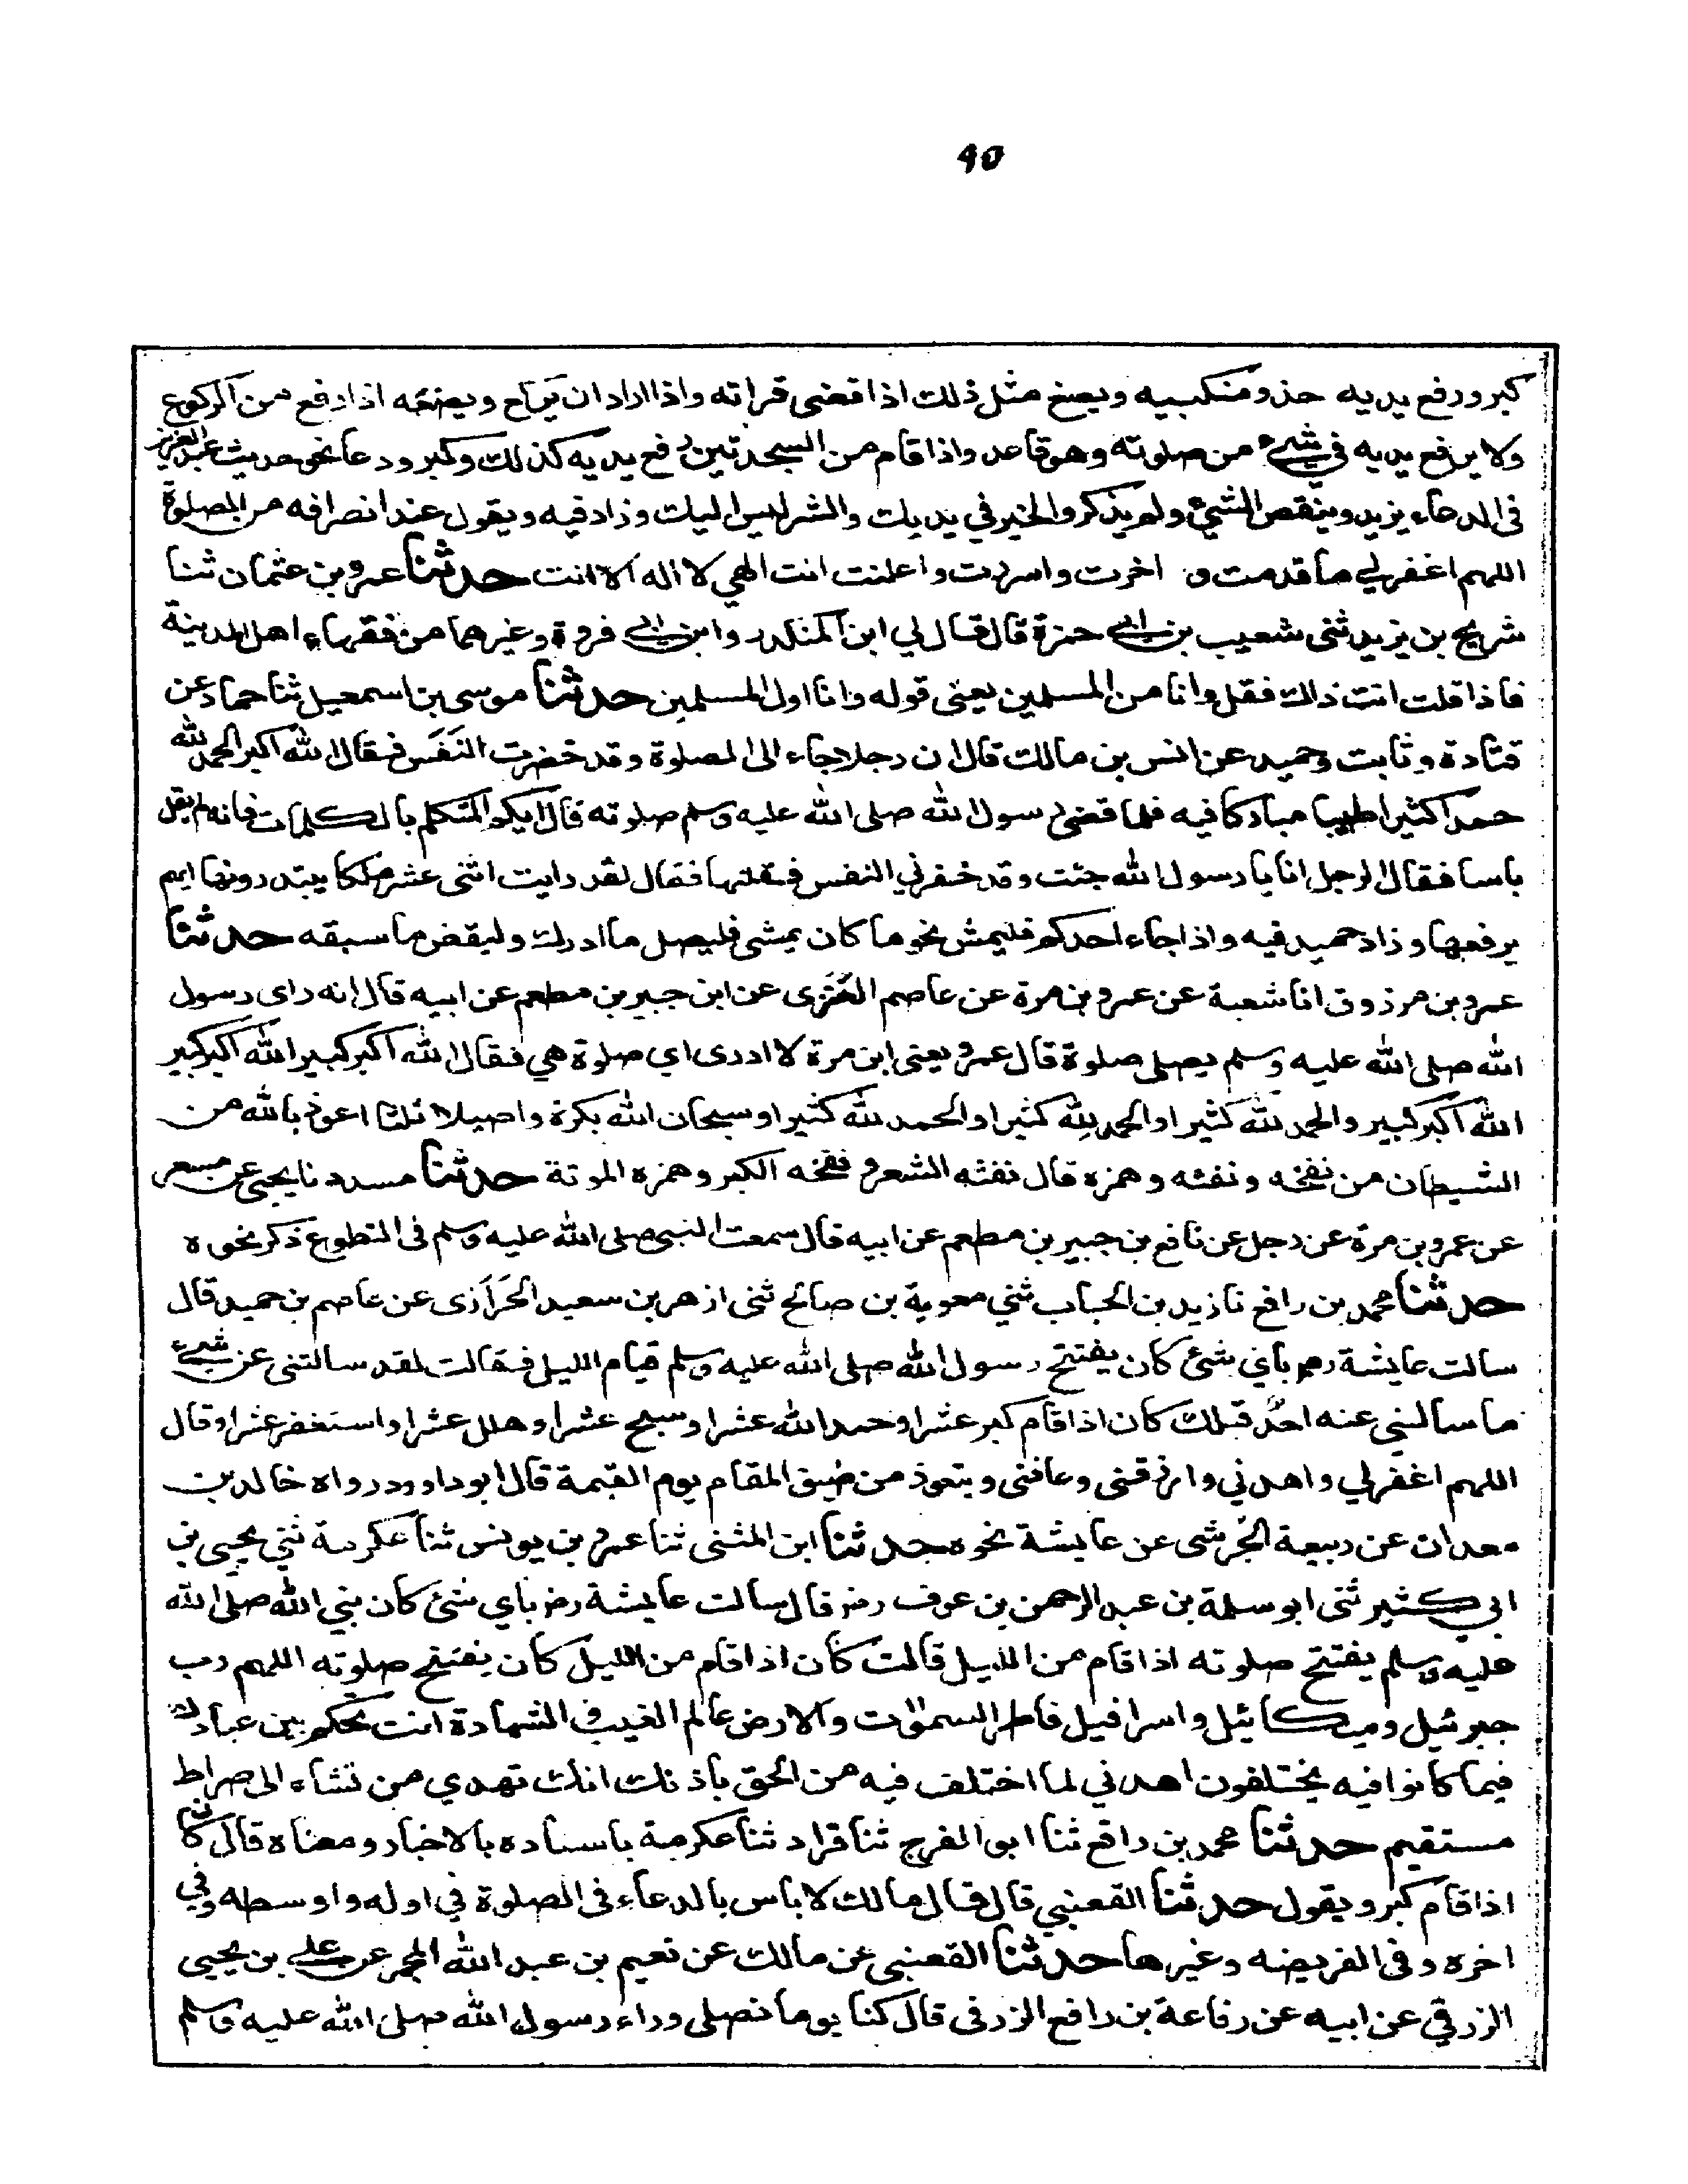 ٩٥
كبر ورفع يديه حذو منكبيه ويصنع مثل ذلك اذا قضى قراته واذا اراد ان يركع ويصنعه اذا رفع من الركوع
ولا يرفع يديه في شيء من صلوته وهو قاعد واذا قام من السجدتين رفع يديه كذلك وكبر ودعا نحو حديث عبد العزيز
في الدعاء يزيد وينقص الشيء ولم يذكر والخير في يديك والشر ليس اليك وزاد فيه ويقول عند انصرافه من الصلوة
اللهم اغفر لي ما قدمت و اخرت واسررت واعلنت انت الهي لا اله الا انت حدثنا عمرو بن عثمان ثنا
شريح بن يزيد ثنى شعيب بن ابي حمزة قال قال لي ابن المنكدر وابن ابي فروة وغيرهما من فقهاء اهل المدينة
فاذا قلت انت ذاك فقل وانا من المسلمين يعنى قوله وانا اول المسلمين حدثنا موسى بن اسمعيل ثنا حماد عن
قتادة وثابت وحميد عن انس بن مالك قال ان رجلا جاء الى الصلوة وقد حفزت النفس فقال الله اكبر الحمد لله
حمدا كثيرا طيبا مباركا فيه فلما قضى رسول الله صلى الله عليه وسلم صلوته قال ايكم المتكلم بالكلمات فانه لم يقل
باسا فقال الرجل انا يا رسول الله جئت وقد حفزني النفس فقلتها فقال لقد رايت اثنى عشر ملكا يبتدرونها ايهم
يرفعها وزاد حميد فيه واذا جاء احدكم فليمش نحو ما كان يمشى فليصل ما ادرك وليقض ما سبقه حدثنا
عمرو بن مرزوق انا شعبة عن عمرو بن مرة عن عاصم العنزى عن ابن جبير بن مطعم عن ابيه قال انه راى رسول
الله صلى الله عليه وسلم يصلى صلوة قال عمرو يعنى ابن مرة لا ادرى اي صلوة هي فقال الله اكبر كبيرا الله اكبر كبير
الله اكبر كبير والحمد لله كثيرا والحمد لله كثيرا والحمد لله كثيرا وسبحان الله بكرة واصيلا ثلثا اعوذ بالله من
الشيطان من نفخه ونفثه وهمزه قال نفثه الشعر ونفخه الكبر وهمزه الموتة حدثنا مسدد نا يحيى عن مسعر
عن عمرو بن مرة عن رجل عن نافع بن جبير بن مطعم عن ابيه قال سمعت النبي صلى الله عليه وسلم في التطوع ذكر نحوه
حدثنا محمد بن رافع نا زيد بن الحباب ثني معوية بن صالح ثنى ازهر بن سعيد الحرازى عن عاصم بن حميد قال
سالت عايشة رضي باي شئ كان يفتتح رسول الله صلى الله عليه وسلم قيام الليل فقالت لقد سالتنى عن شيء
ما سالني عنه احد قبلك كان اذا قام كبر عشرا وحمد الله عشرا وسبح عشرا وهلل عشرا واستغفر عشرا وقال
اللهم اغفر لي واهدني وارزقنى وعافنى ويتعوذ من ضيق المقام يوم القيمة قال ابو داود ورواه خالد بن
معدان عن ربيعة الجرشى عن عايشة نحوه حدثنا ابن المثنى ثنا عمر بن يونس ثنا عكرمة ثني يحيى بن
ابي كثير ثنى ابو سلمة بن عبد الرحمن بن عوف رض قال سالت عايشة رض باي شئ كان نبي الله صلى الله
عليه وسلم يفتتح صلوته اذا قام من الليل قالت كان اذا قام من الليل كان يفتتح صلوته اللهم رب
جبرئيل وميكائيل واسرافيل فاطر السموات والارض عالم الغيب والشهادة انت تحكم بين عبادك
فيما كانوا فيه يختلفون اهدني لما اختلف فيه من الحق باذنك انك تهدي من تشاء الى صراط
مستقيم حدثنا محمد بن رافع ثنا ابو الفرج ثنا قراد ثنا عكرمة باسناده بالاخبار ومعناه قال كان
اذا قام كبر ويقول حدثنا القعنبي قال قال مالك لا باس بالدعاء في الصلوة في اوله واوسطه وفي
اخره وفي الفريضه وغيرها حدثنا القعنبى عن مالك عن نعيم بن عبد الله المجمر عن علي بن يحيى
الزرقي عن ابيه عن رفاعة بن رافع الزرقى قال كنا يوما نصلى وراء رسول الله صلى الله عليه وسلم